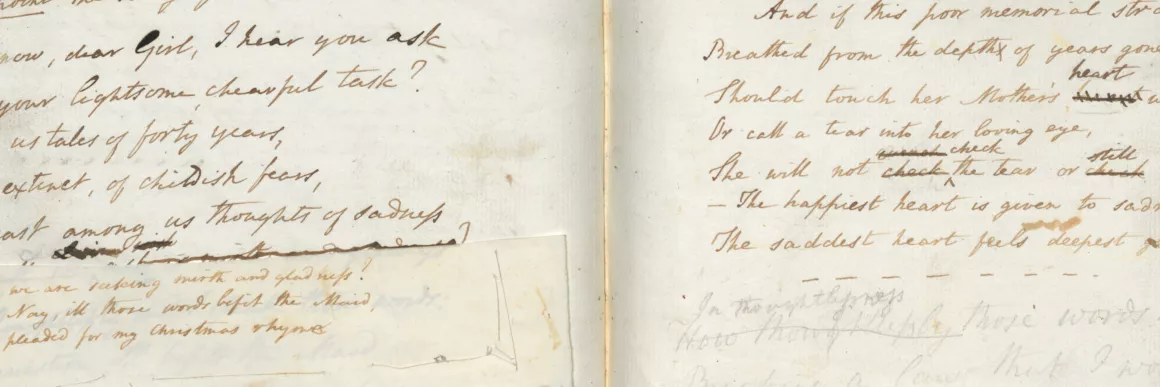 now, dear Girl, I hear you ask
your lightsome, chearful task?
us tales of forty years,
extinct, of childish fears,
ast among us thoughts of sadness
we are seeking mirth and gladness?
Nay, ill those words befit the Maid
pleaded for my Christmas rhyme
And if this poor memorial stra
Breathed from the depth of years gone
heart
Should touch her Mother's
Or call a tear into her loving eye,
check still
She will not check the tear or check
— The happiest heart is given to sadn
The saddest heart feels deepest
In thoughtlessness
those words
that I wo